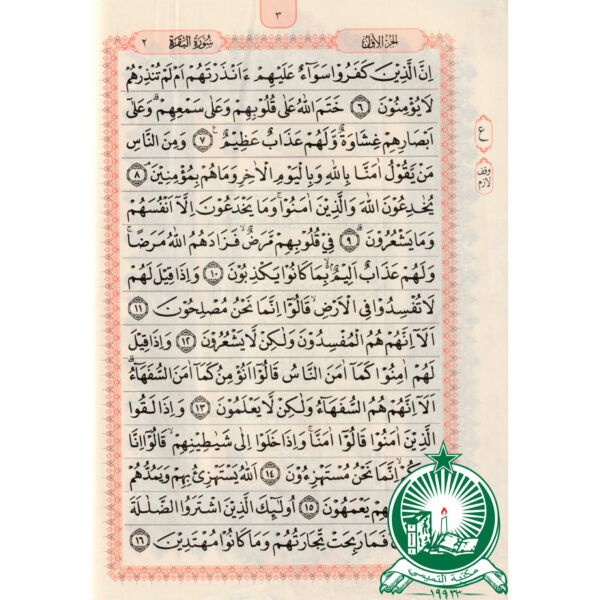 ٣
الجزء الأول
سورة البقرة ٢
اِنَّ الَّذِيْنَ كَفَرُوْا سَوَآءٌ عَلَيْهِمْ ءَاَنْذَرْتَهُمْ اَمْ لَمْ تُنْذِرْهُمْ
لَا يُؤْمِنُوْنَ ٦ خَتَمَ اللهُ عَلٰى قُلُوْبِهِمْ وَعَلٰى سَمْعِهِمْ ۗ وَعَلٰٓى
اَبْصَارِهِمْ غِشَاوَةٌ وَّلَهُمْ عَذَابٌ عَظِيْمٌ ٧ وَمِنَ النَّاسِ
مَنْ يَّقُوْلُ اٰمَنَّا بِاللهِ وَبِالْيَوْمِ الْاٰخِرِ وَمَا هُمْ بِمُؤْمِنِيْنَ ۘ ٨
يُخٰدِعُوْنَ اللهَ وَالَّذِيْنَ اٰمَنُوْا ۚ وَمَا يَخْدَعُوْنَ اِلَّآ اَنْفُسَهُمْ
وَمَا يَشْعُرُوْنَ ۗ ٩ فِيْ قُلُوْبِهِمْ مَّرَضٌ ۙ فَزَادَهُمُ اللهُ مَرَضًا ۚ
وَلَهُمْ عَذَابٌ اَلِيْمٌ ۢ ۙ بِمَا كَانُوْا يَكْذِبُوْنَ ١٠ وَاِذَا قِيْلَ لَهُمْ
لَا تُفْسِدُوْا فِى الْاَرْضِ ۙ قَالُوْٓا اِنَّمَا نَحْنُ مُصْلِحُوْنَ ١١
اَلَآ اِنَّهُمْ هُمُ الْمُفْسِدُوْنَ وَلٰكِنْ لَّا يَشْعُرُوْنَ ١٢ وَاِذَا قِيْلَ
لَهُمْ اٰمِنُوْا كَمَآ اٰمَنَ النَّاسُ قَالُوْٓا اَنُؤْمِنُ كَمَآ اٰمَنَ السُّفَهَآءُ ۗ
اَلَآ اِنَّهُمْ هُمُ السُّفَهَآءُ وَلٰكِنْ لَّا يَعْلَمُوْنَ ١٣ وَاِذَا لَقُوا
الَّذِيْنَ اٰمَنُوْا قَالُوْٓا اٰمَنَّا ۚ وَاِذَا خَلَوْا اِلٰى شَيٰطِيْنِهِمْ ۙ قَالُوْٓا اِنَّا
كُمْ ۙ اِنَّمَا نَحْنُ مُسْتَهْزِءُوْنَ ١٤ اَللهُ يَسْتَهْزِئُ بِهِمْ وَيَمُدُّهُمْ
هِمْ يَعْمَهُوْنَ ١٥ اُولٰٓئِكَ الَّذِيْنَ اشْتَرَوُا الضَّلٰلَةَ
فَمَا رَبِحَتْ تِّجَارَتُهُمْ وَمَا كَانُوْا مُهْتَدِيْنَ ١٦
ع
وقف
لازم
مكتبة النميسي
١٩٩٢٣